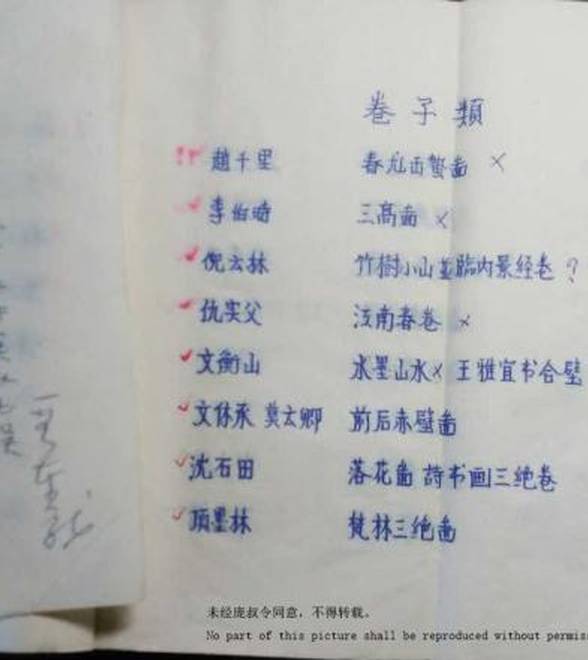 卷子類
趙千里 春龙出蟄啚 ×
李伯時 三高啚 ×
倪云林 竹樹小山並臨内景经卷 ?
仇实父 江南春卷 ×
文衡山 水墨山水× 王雅宜书合壁
文休承 莫云卿 前后赤壁啚
沈石田 落花啚 詩书画三绝卷
项墨林 梵林三绝啚
未经庞叔令同意，不得转载。
No part of this picture shall be reproduced without permis